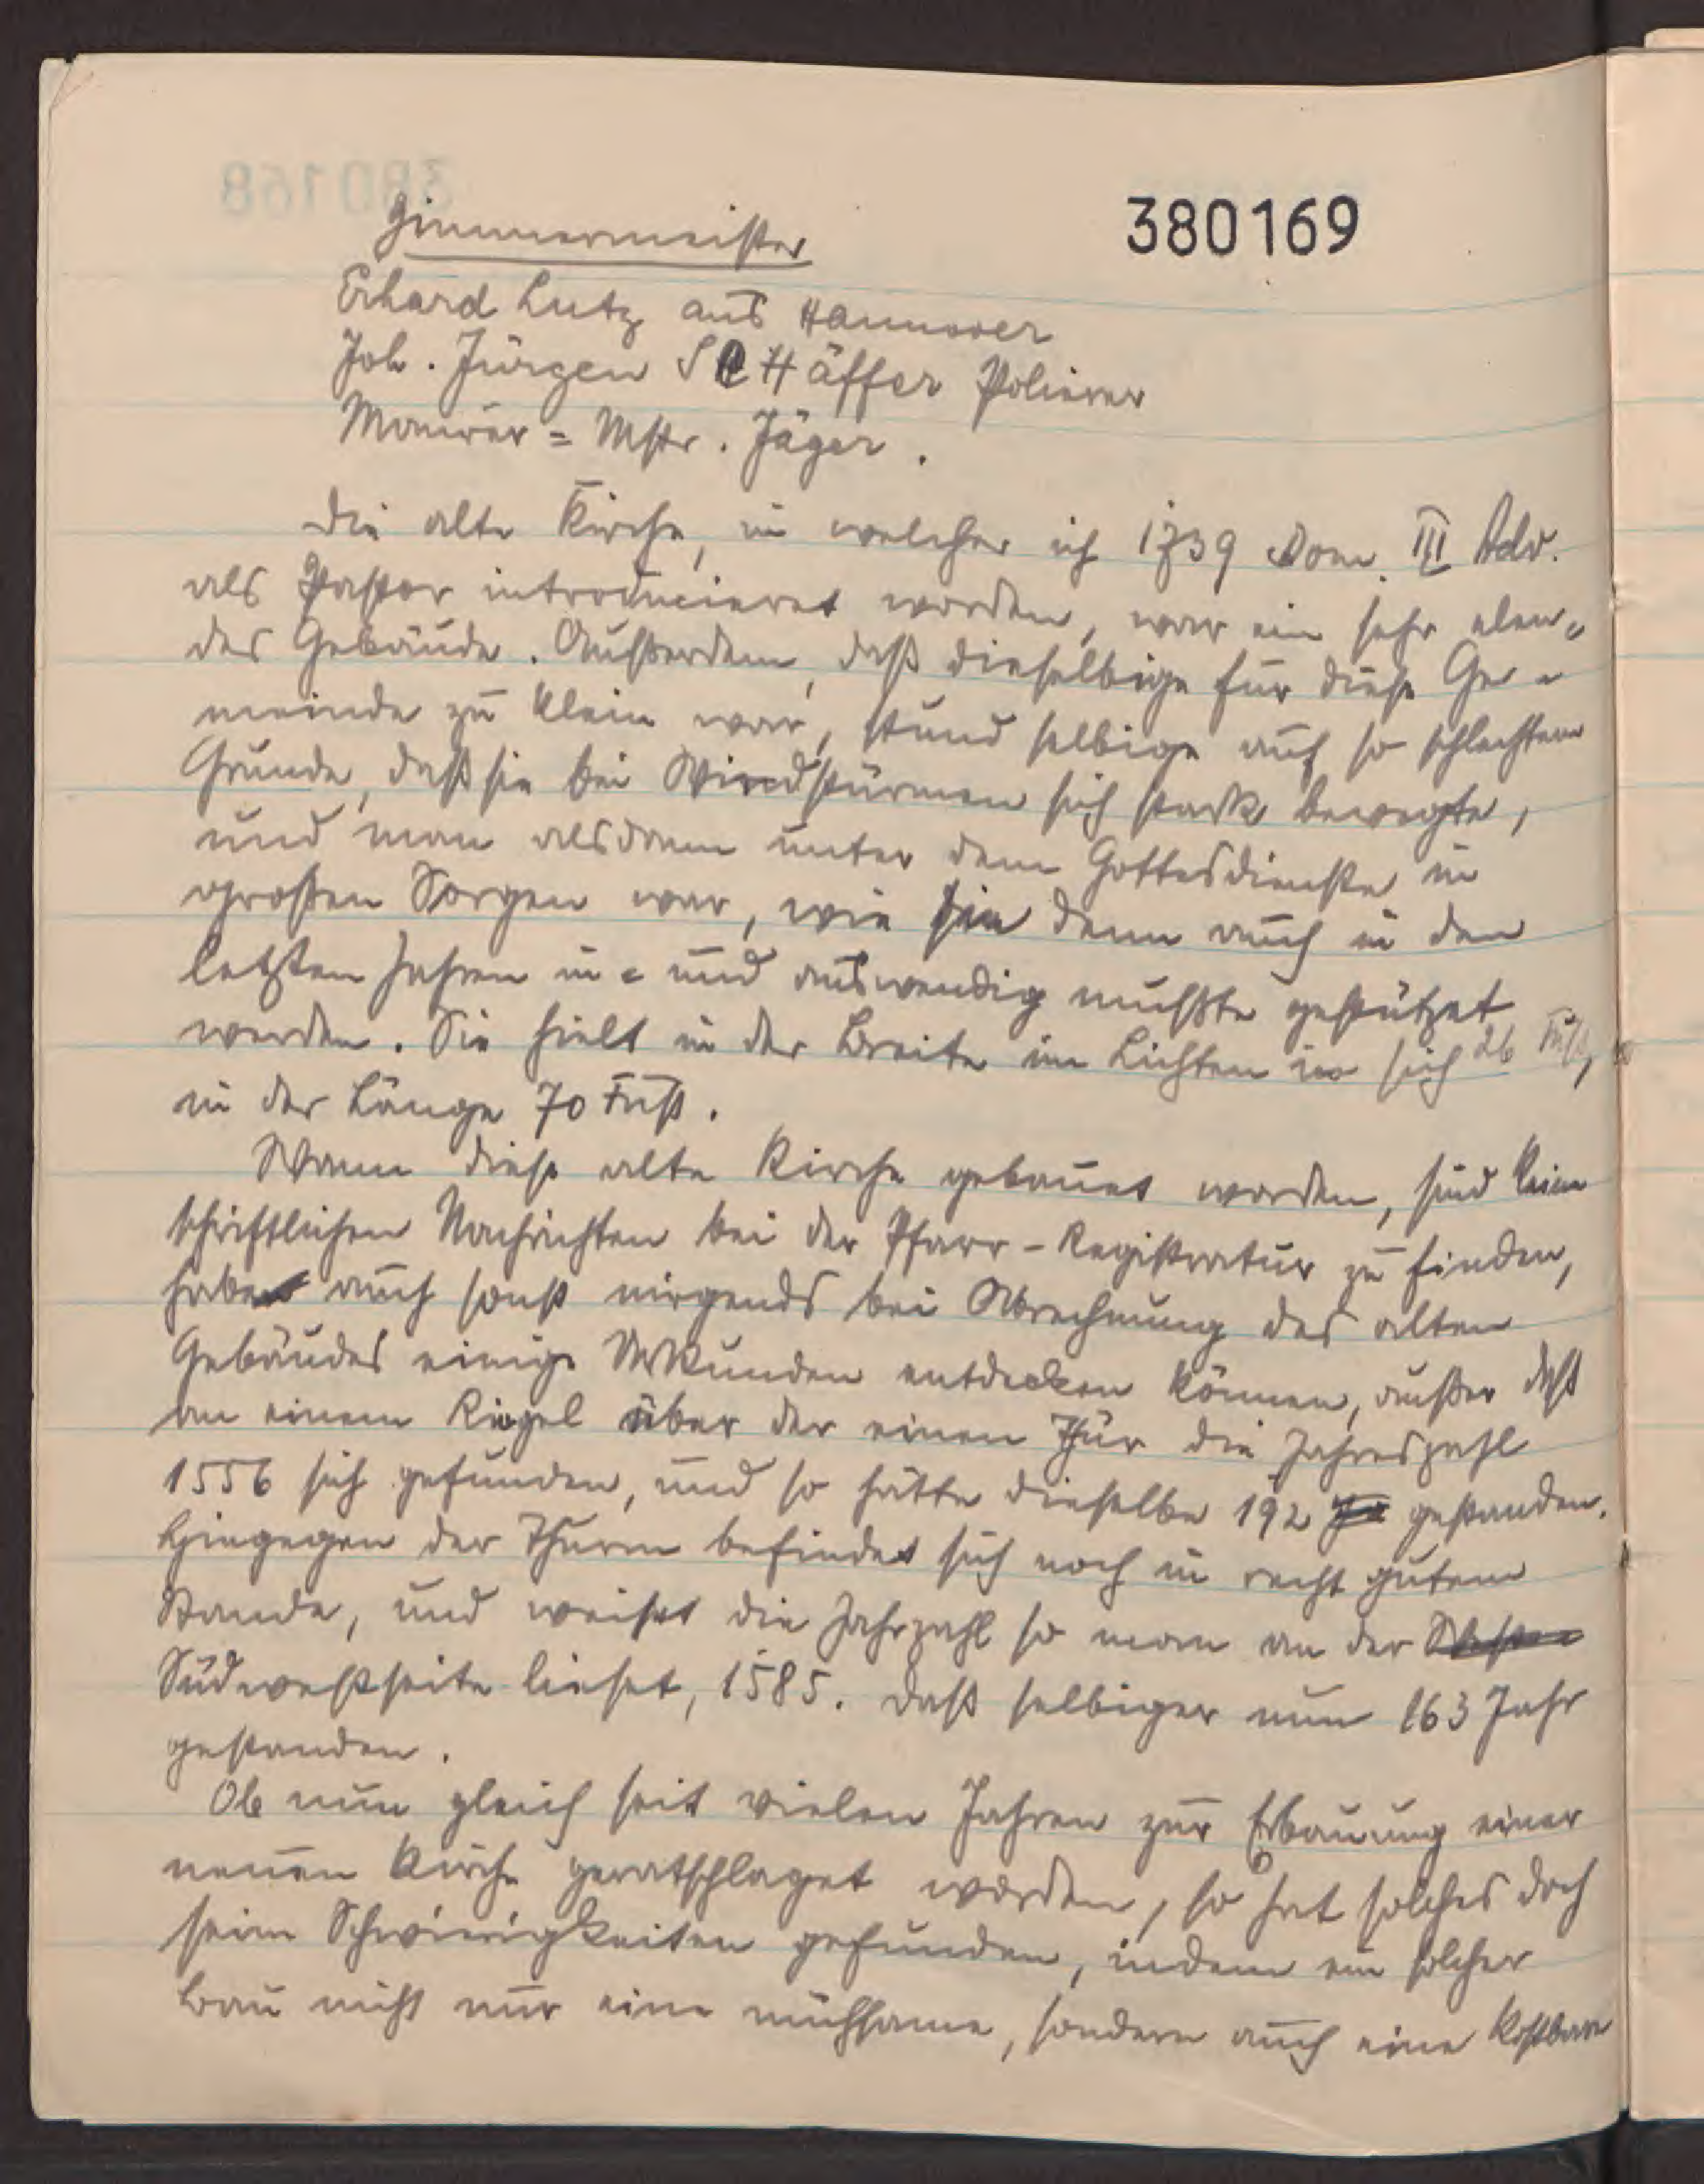 380169
Zimmermeister
Erhard Lutz aus Hannover
Joh. Jürgen SCHäffer Polierer
Maurer-Mstr. Jäger.
Die alte Kirche, in welcher ich 1739 Dom. III Adv.
als Pastor introducieret worden, war ein sehr elen-
des Gebäude. Außerdem, daß dieselbige für diese Ge-
meinde zu klein war, stund selbige auf so schlechtem
Grunde, daß sie bei Windstürmen sich stark bewegte,
und man alsdann unter dem Gottesdienste in
großen Sorgen war, wie sie denn auch in den
letzten Jahren in- und auswendig mußte gestützet
werden. Sie hielt in der Breite im Lichten in sich 26 Fuß,
in der Länge 70 Fuß.
Wann diese alte Kirche gebauet worden, sind keine
schriftlichen Nachrichten bei der Pfarr-Registratur zu finden,
habe auch sonst nirgends bei Abrechnung des alten
Gebäudes einige Urkunden entdecken können, außer daß
an einem Riegel über der einen Thür die Jahreszahl
1556 sich gefunden, und so hätte dieselbe 192 gestanden.
Hingegen der Thurm befindet sich noch in recht gutem
Stande, und weiset die Jahrzahl so man an der
Südwestseite lieset, 1585. daß selbiger nun 163 Jahr
gestanden.
Ob nun gleich seit vielen Jahren zur Erbauung einer
neuen Kirche geratschlaget worden, so hat solches doch
seine Schwierigkeiten gefunden, indem ein solcher
Bau nicht nur eine mühsame, sondern auch eine kostbare